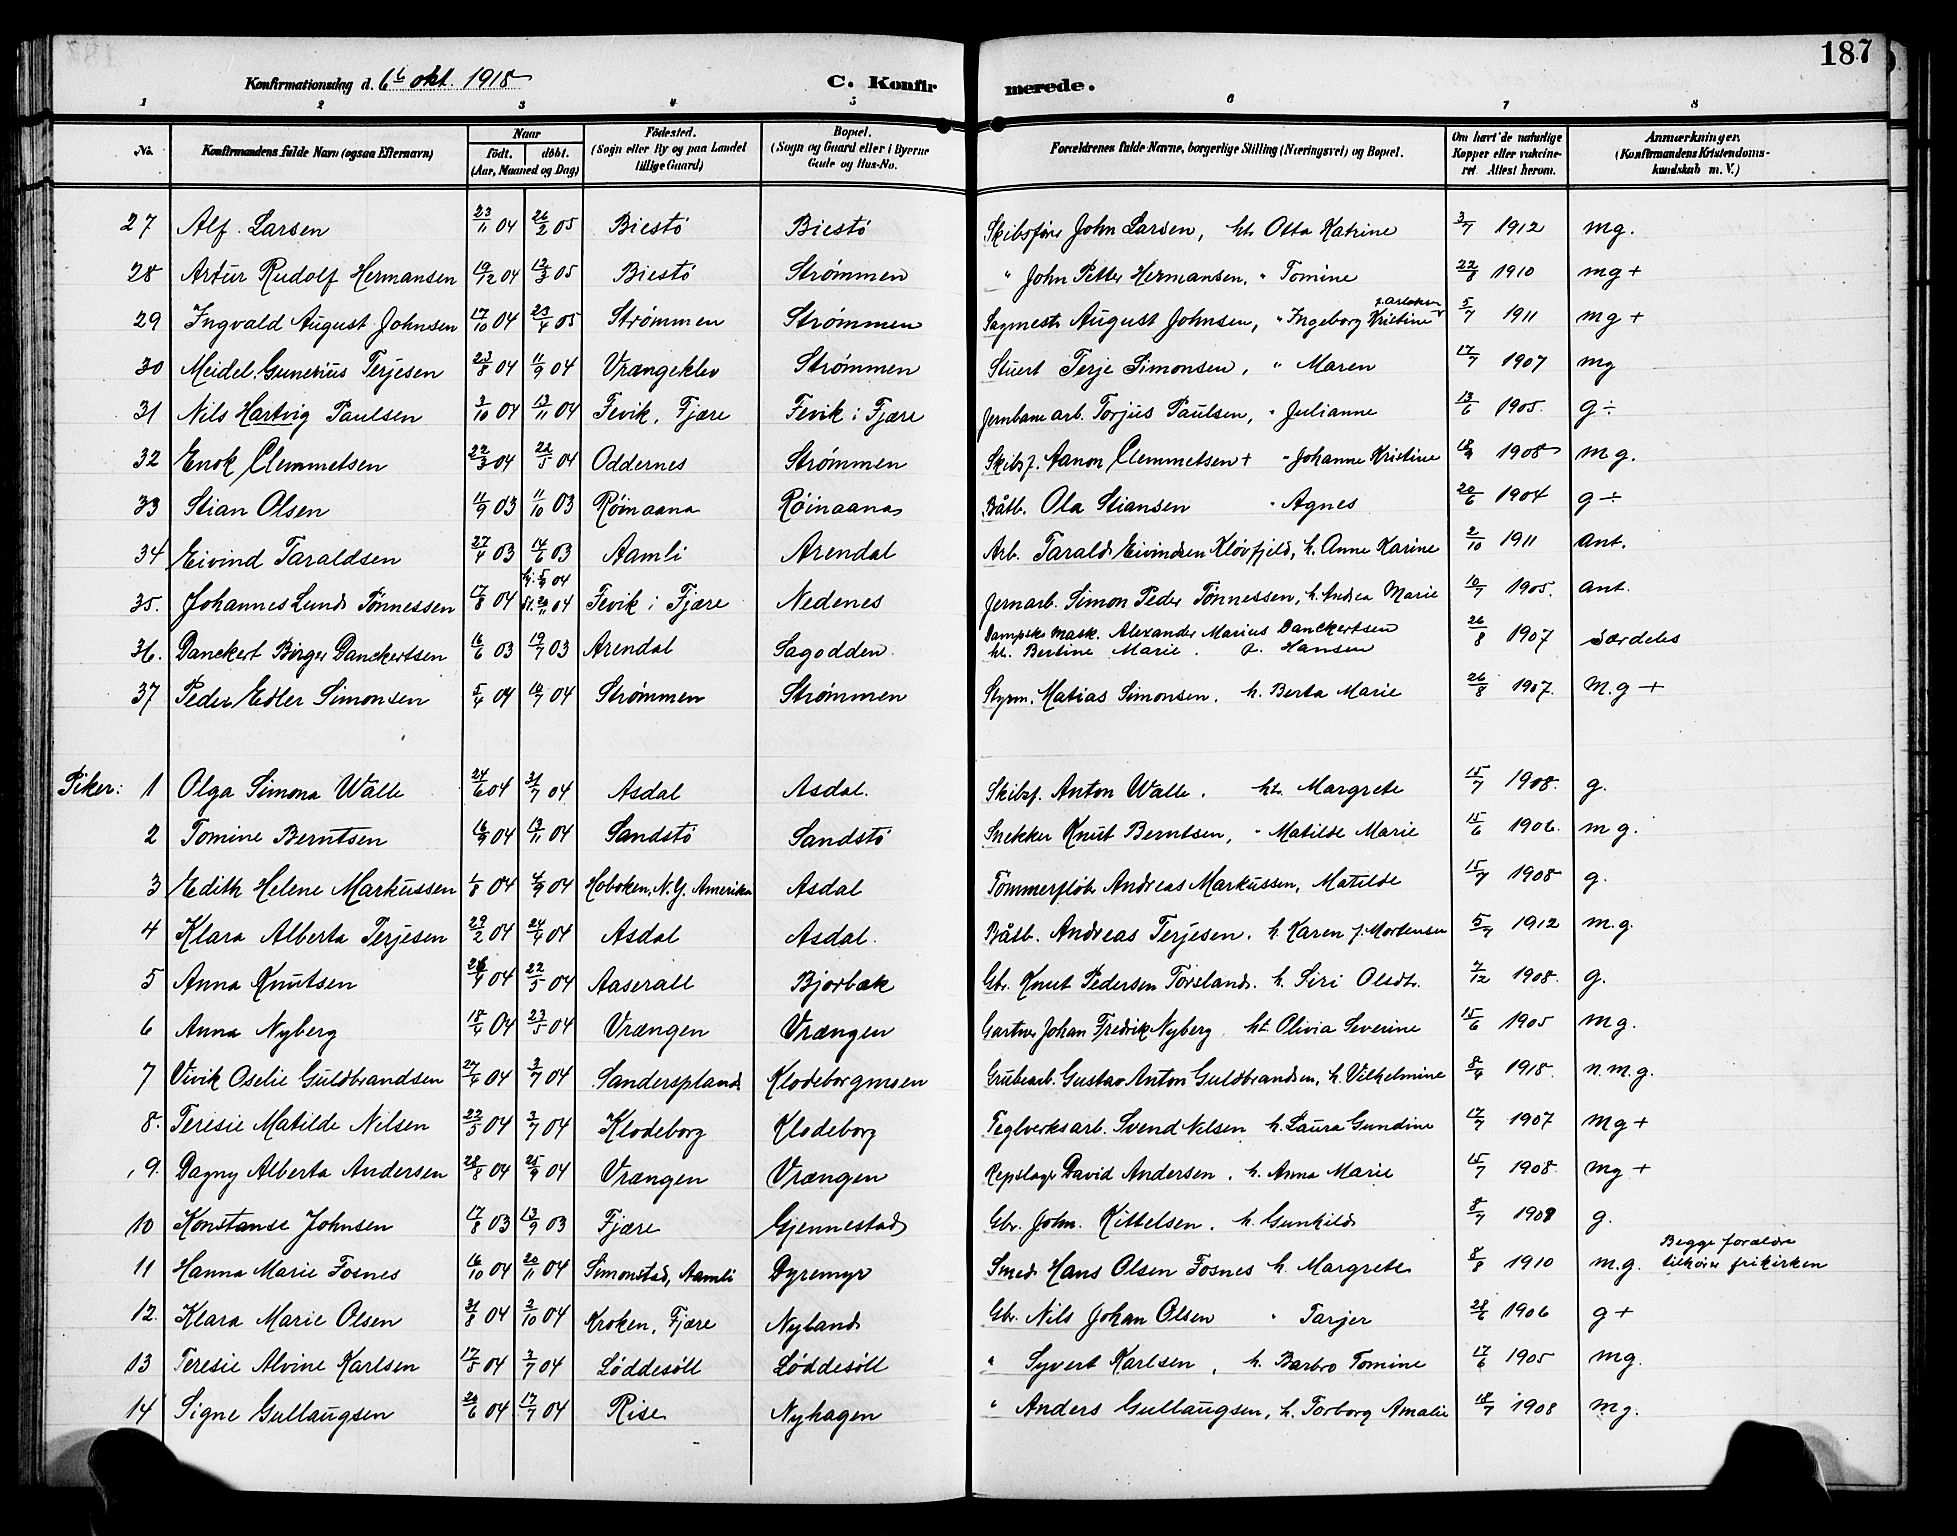 187
Konfirmationsdag d. 6te okt. 1918
C. Konfir merede.
1 2 3 4 5 6 7 8
No. Konfirmandens fulde Navn (ogsaa Efternavn) Naar født. døbt. (Aar, Maaned og Dag) Fødested. (Sogn eller By og paa Landet tillige Gaard) Bopæl. (Sogn og Gaard eller i Byerne Gade og Hus-No. Forældrenes fulde Navne, borgerlige Stilling (Næringsvei) og Bopæl. Om havt de naturlige Kopper eller vaksineret Attest herom. Anmærkninger. (Konfirmandens Kristendomskundskab m. V.)
27 Alf Larsen 23/11 04 26/2 05 Biestö Biestö Skibsfører John Larsen, ht. Otta Katrine 3/7 1912 mg.
28 Artur Rudolf Hermansen 19/12 04 12/3 05 Biestö Strømmen " John Petter Hermansen, " Tomine 22/8 1910 mg +
29 Ingvald August Johnsen 17/10 04 23/4 05 Strømmen Strømmen Sagmestr August Johnsen, " Ingeborg Kristine 5/7 1911 mg +
30 Meidel Gunerius Terjesen 23/8 04 11/9 04 Vrængeklev Strømmen Stuert Terje Simonsen, " Maren 17/7 1907 mg
31 Nils Hartvig Paulsen 3/10 04 13/11 04 Fevik, Fjære Fevik i Fjære Jernbanearb. Torjus Paulsen, " Julianne 13/6 1905. g ÷
32 Enok Clemmetsen 22/3 04 22/5 04 Oddernes Strømmen Skibsf. Aanon Clemmetsen + " Johanne Kristine 1908 m g.
33 Stian Olsen 11/9 03 11/10 03 Röinaana Röinaana Båtb. Ola Stiansen " Agnes 20/6 1904 g ÷
34 Eivind Taraldsen 27/4 03 14/6 03 Aamli Arendal Arb. Tarald Eivindsen Kløvfjeld, h. Anne Karine 2/10 1911 ant.
35. Johannes Lund Tönnessen 17/8 04 hj. 5/9 04 st. 20/11 04 Fevik i Fjære Nedenes Jernarb. Simon Peder Tönnessen, h. Andrea Marie 10/7 1905. ant.
36. Danckert Birger Danckertsen 16/6 03 19/7 03 Arendal Sagodden. Dampsks mask. Alexander Marius Danckertsen ht. Bertine Marie f. Hansen 26/8 1907 Særdeles
37 Peder Edler Simonsen 5/4 04 10/7 04 Strømmen Strømmen Styrm. Matias Simonsen. h. Berta Marie 26/8 1907. M.g +
Piker: 1 Olga Simona Walle 24/6 04 31/7 04 Asdal Asdal. Skibsf. Anton Walle. ht. Margrete 15/7 1908. g.
2 Tomine Berntsen 16/9 04 13/11 04 Sandstö Sandstö Snekker Knut Berntsen, " Matilde Marie 15/6 1906. m g.
3 Edith Helene Markussen 1/8 04 4/9 04 Hoboken, N.Y. Amerika Asdal Tömmerfløter Andreas Markussen, Matilde 15/7 1908 g.
4 Klara Alberta Terjesen 23/2 04 24/4 04 Asdal Asdal. Båtb. Andreas Terjesen. h. Karen f. Mortensen 5/7 1912 m.g.
5 Anna Knutsen 04 22/5 04 Aaserall Bjorbæk Gbr. Knut Pedersen Torsland. h. Siri Olsdt. 7/12 1908. g.
6 Anna Nyberg 18/4 04 23/5 04 Vrængen Vrængen Gartner Johan Fredrik Nyberg ht. Olivia Severine 15/6 1905 mg.
7 Vivik Oselie Guldbrandsen 27/4 04 3/7 04 Sandersplands Klodeborgmoen Grubearb. Gustav Anton Guldbrandsen, h. Vilhelmine 8/4 1918. n.m.g.
8. Teresie Matilde Nilsen 22/5 04 3/7 04 Klodeborg Klodeborg Teglverksarb. Svend Nilsen h. Laura Gundine 17/7 1907 mg +
9. Dagny Alberta Andersen 28/8 04 25/9 04 Vrængen Vrængen Repslager David Andersen. h. Anna Marie 15/7 1908. mg +
10 Konstanse Johnsen 17/8 03 13/9 03 Fjære Gjennestad Gbr. John Kittelsen. h. Gunhild 8/7 1908 g.
11 Hanna Marie Fosnes 16/10 04 20/11 04 Simonstad, Aamli Dyremyr Smed Hans Olsen Fosnes h. Margrete 8/8 1910 m.g. Begge forældre tilhører frikirken
12. Klara Marie Olsen 31/8 04 2/10 04 Kroken, Fjære Nyland Gbr. Nils Johan Olsen " Tarjer 28/6 1906 g +
13 Teresie Alvine Karlsen 17/5 04 3/7 04 Løddesöll Løddesöll " Syvert Karlsen, h. Barbro Tomine 17/6 1905 mg.
14 Signe Gullaugsen 29/6 04 17/7 04 Rise Nyhagen " Anders Gullaugsen, h. Torborg Amalie 18/7 1908 mg.